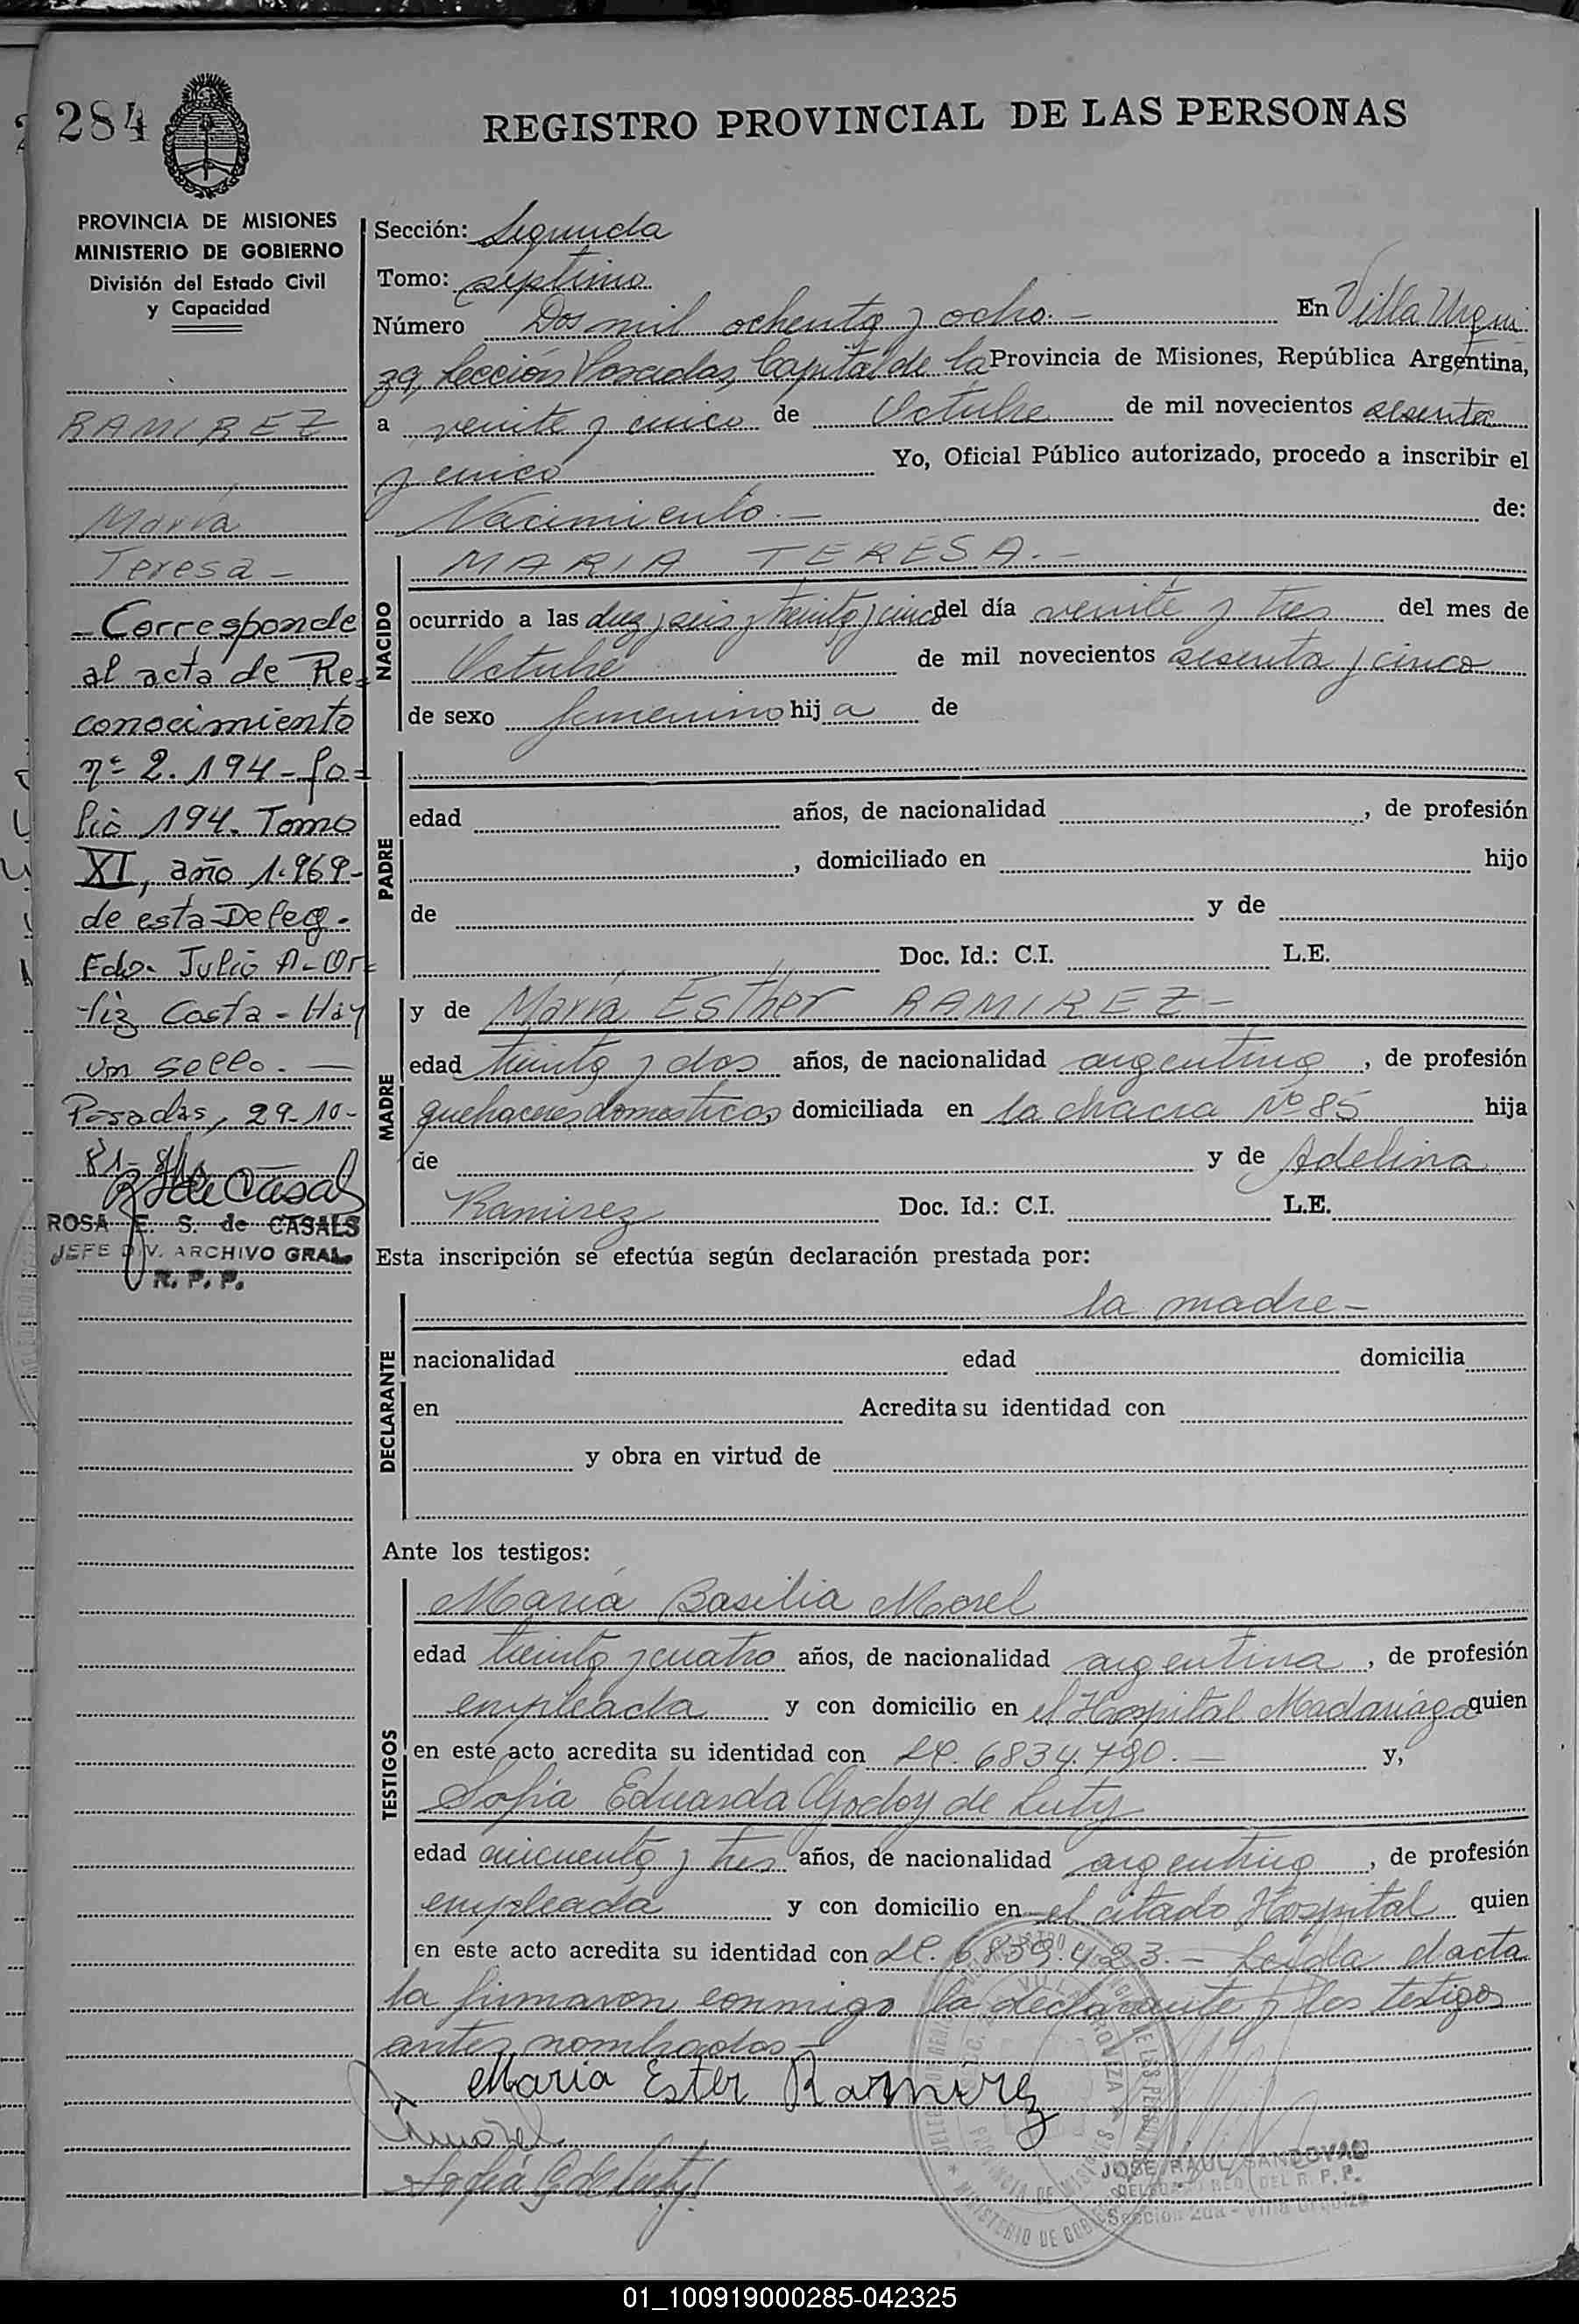 284
REGISTRO PROVINCIAL DE LAS PERSONAS
PROVINCIA DE MISIONES
MINISTERIO DE GOBIERNO
División del Estado Civil
y Capacidad
RAMIREZ
María
Teresa -
- Corresponde
al acta de Re=
conocimiento
nº 2.194 - fo=
lio 194. Tomo
XI, año 1.969-
de esta Deleg.
Fdo. Julio A. Or=
tiz Costa - Hay
un sello. —
Posadas, 29-10-
81-
ROSA E. S. de CASALS
JEFE DIV. ARCHIVO GRAL.
R. P. P.
Sección: Segunda
Tomo: septimo
Número Dos mil ochenta y ocho. - En Villa Urqui
za, Sección Posadas, Capital de la Provincia de Misiones, República Argentina,
a veinte y cinco de Octubre de mil novecientos sesenta
y cinco Yo, Oficial Público autorizado, procedo a inscribir el
Nacimiento. - de:
NACIDO
MARIA TERESA. -
ocurrido a las diez y seis y treinta y cinco del día veinte y tres del mes de
Octubre de mil novecientos sesenta y cinco
de sexo femenino hij a de
PADRE
edad años, de nacionalidad , de profesión
, domiciliado en hijo
de y de
Doc. Id.: C.I. L.E.
MADRE
y de María Esther RAMIREZ -
edad treinta y dos años, de nacionalidad argentina, de profesión
quehaceres domesticos domiciliada en la chacra Nº 85 hija
de y de Adelina
Ramirez Doc. Id.: C.I. L.E.
Esta inscripción se efectúa según declaración prestada por:
DECLARANTE
la madre -
nacionalidad edad domicilia
en Acredita su identidad con
y obra en virtud de
Ante los testigos:
TESTIGOS
María Basilia Morel
edad treinta y cuatro años, de nacionalidad argentina, de profesión
empleada y con domicilio en el Hospital Madariaga quien
en este acto acredita su identidad con LC. 6834.790. - y,
Sofia Eduarda Godoy de Luty
edad cincuenta y tres años, de nacionalidad argentina, de profesión
empleada y con domicilio en el citado Hospital quien
en este acto acredita su identidad con LC. 6.839.423. - Leida el acta
la firmaron conmigo la declarante y los testigos
antes nombrados -
Maria Ester Ramirez
JOSE RAUL SANDOVAL
DELEGADO REG. DEL R. P. P.
Sección 2da - Villa Urquiza
01_100919000285-042325